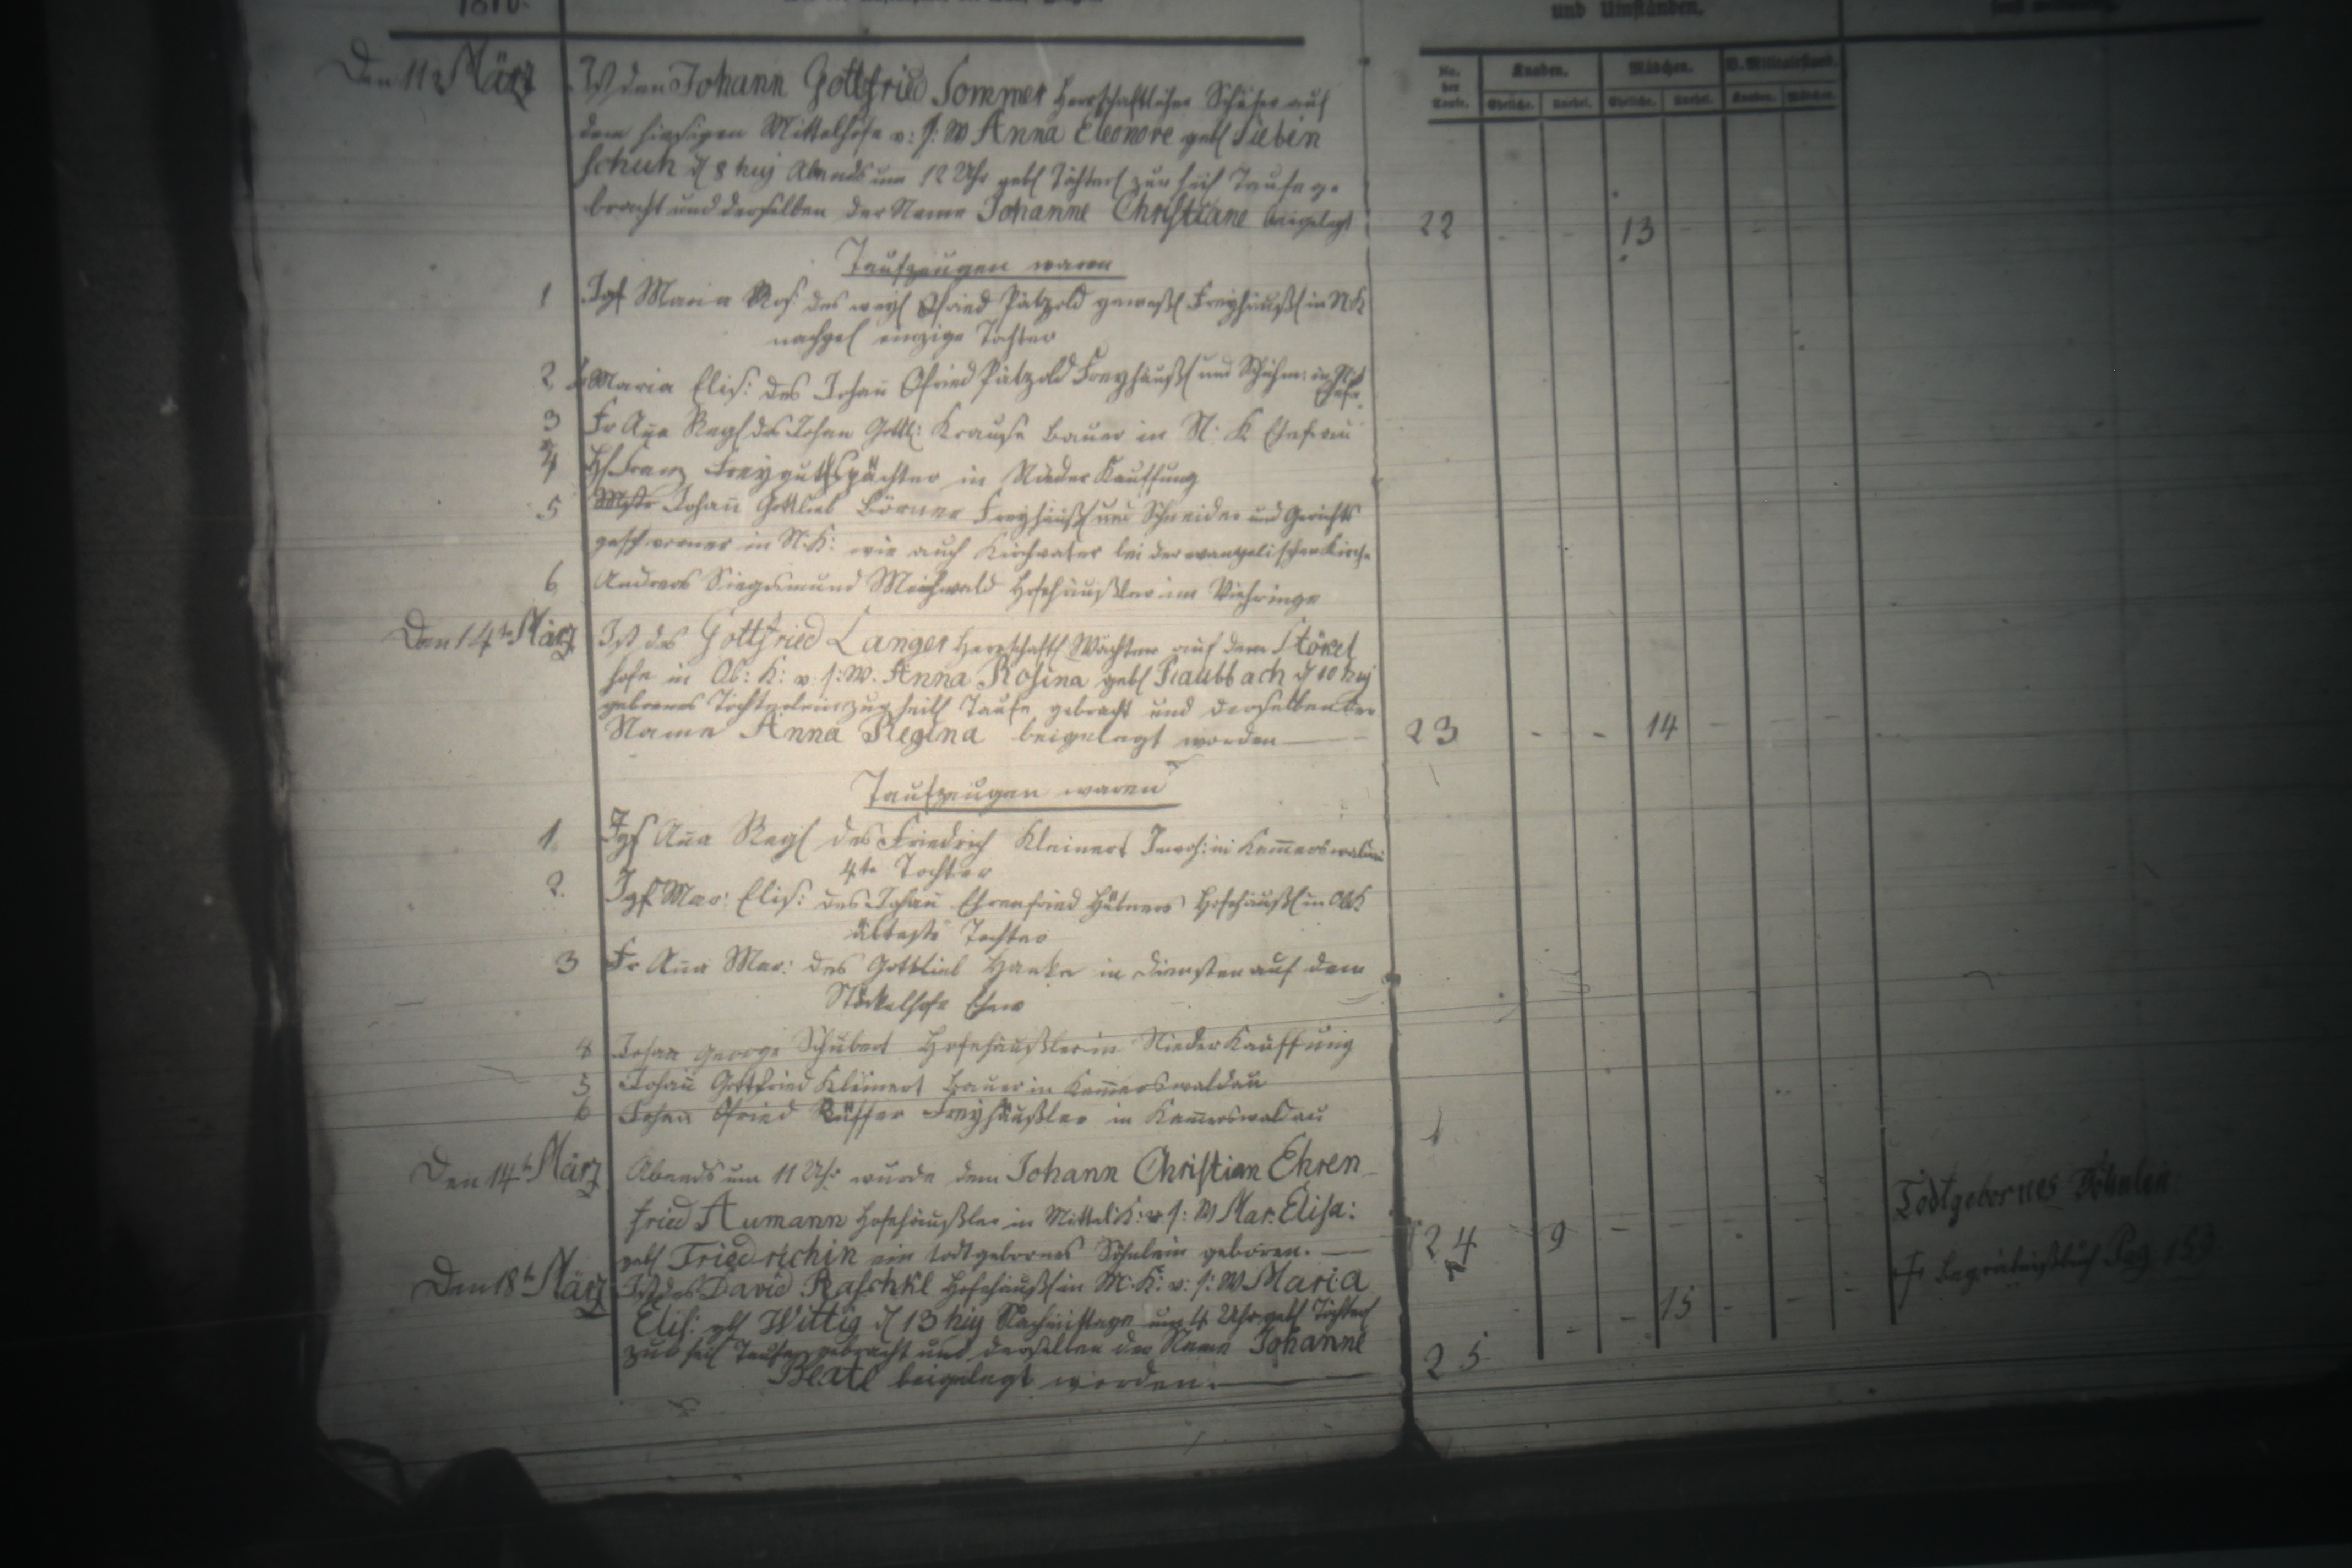 1816.
und Umständen.
No. der Taufe.
Knaben.
Mädchen.
V. Militairstand.
Eheliche. Unehel. Eheliche. Unehel. Knaben. Mädchen.
Den 11n März
Ist dem Johann Gottfried Sommer Herrschaftlicher Schäfer auf
dem hiesigen Mittelhofe v: s: W Anna Eleonore geb Sieben
schuh d 8 huj Abends um 12 Uhr geb Töchterl zur heil Taufe ge-
bracht und derselben der Name Johanne Christiane beigelegt
22 - - 13 - - -
Taufzeugen waren
1 Jgf Maria Ros: des weyl Gfried Pätzold gewes Freyhäusl in N K
nachgel einzige Tochter
2 Fr Maria Elis: des Johan̄ Gfried Pätzold Freyhäusl und Schuhm: in N K
Ehefr.
3 Fr Aña Reg des Johan Gottl: Krause Bauer in N: K Ehefrau
4 H Franz Freygutspächter in Nieder Kauffung
5 Mstr Johan̄ Gottlieb Börner Freyhäusl und Schneider und Gerichts
geschworner in N: K: wie auch Kirchvater bei der evangelischen Kirche
6 Andreas Siegismund Meichwald Hofehäusler im Viehringe
Den 14tn März
Ist des Gottfried Langer Herrschaftl Wächter auf dem Stökel
hofe in Ob: K: v: s: W. Anna Rosina geb Raubbach d 10 huj
gebornes Töchterlein zur heil Taufe gebracht und derselben der
Name Anna Regina beigelegt worden
23 - - 14 - - -
Taufzeugen waren
1. Jgf Aña Reg des Friedrich Kleinert Inwoh: in Kam̄erswaldau
4te Tochter
2. Jgf Mar: Elis: des Johan̄ Ehrenfried Hübners Hofehäusl in Ob K
älteste Tochter
3 Fr Aña Mar: des Gottlieb Hanke in Diensten auf dem
Stöckelhofe Ehew
4 Johan George Schubert Hofehäusler in Nieder Kauffung
5 Johan̄ Gottfried Kleinert Bauer in Kam̄erswaldau
6 Johan̄ Gfried Rüffer Freyhäusler in Kam̄erswaldau
Den 14tn März
Abends um 11 Uhr wurde dem Johann Christian Ehren-
fried Aumann Hofehäusler in Mittel: K: v: s: W Mar. Elisa:
geb Friedrichin ein todtgebornes Söhnlein geboren.
24 - 9 - - - - -
Todtgebornes Söhnlein
† Begräbnißbuch Pag 153
Den 18tn März
Ist des David Raschke Hofehäusl in M: K: v: s: W Maria
Elis: geb Wittig d 13 huj Nachmittage um 4 Uhr geb Töchterl
zur heil Taufe gebracht und derselben der Name Johanne
Beate beigelegt worden.
25 - - 15 - - -